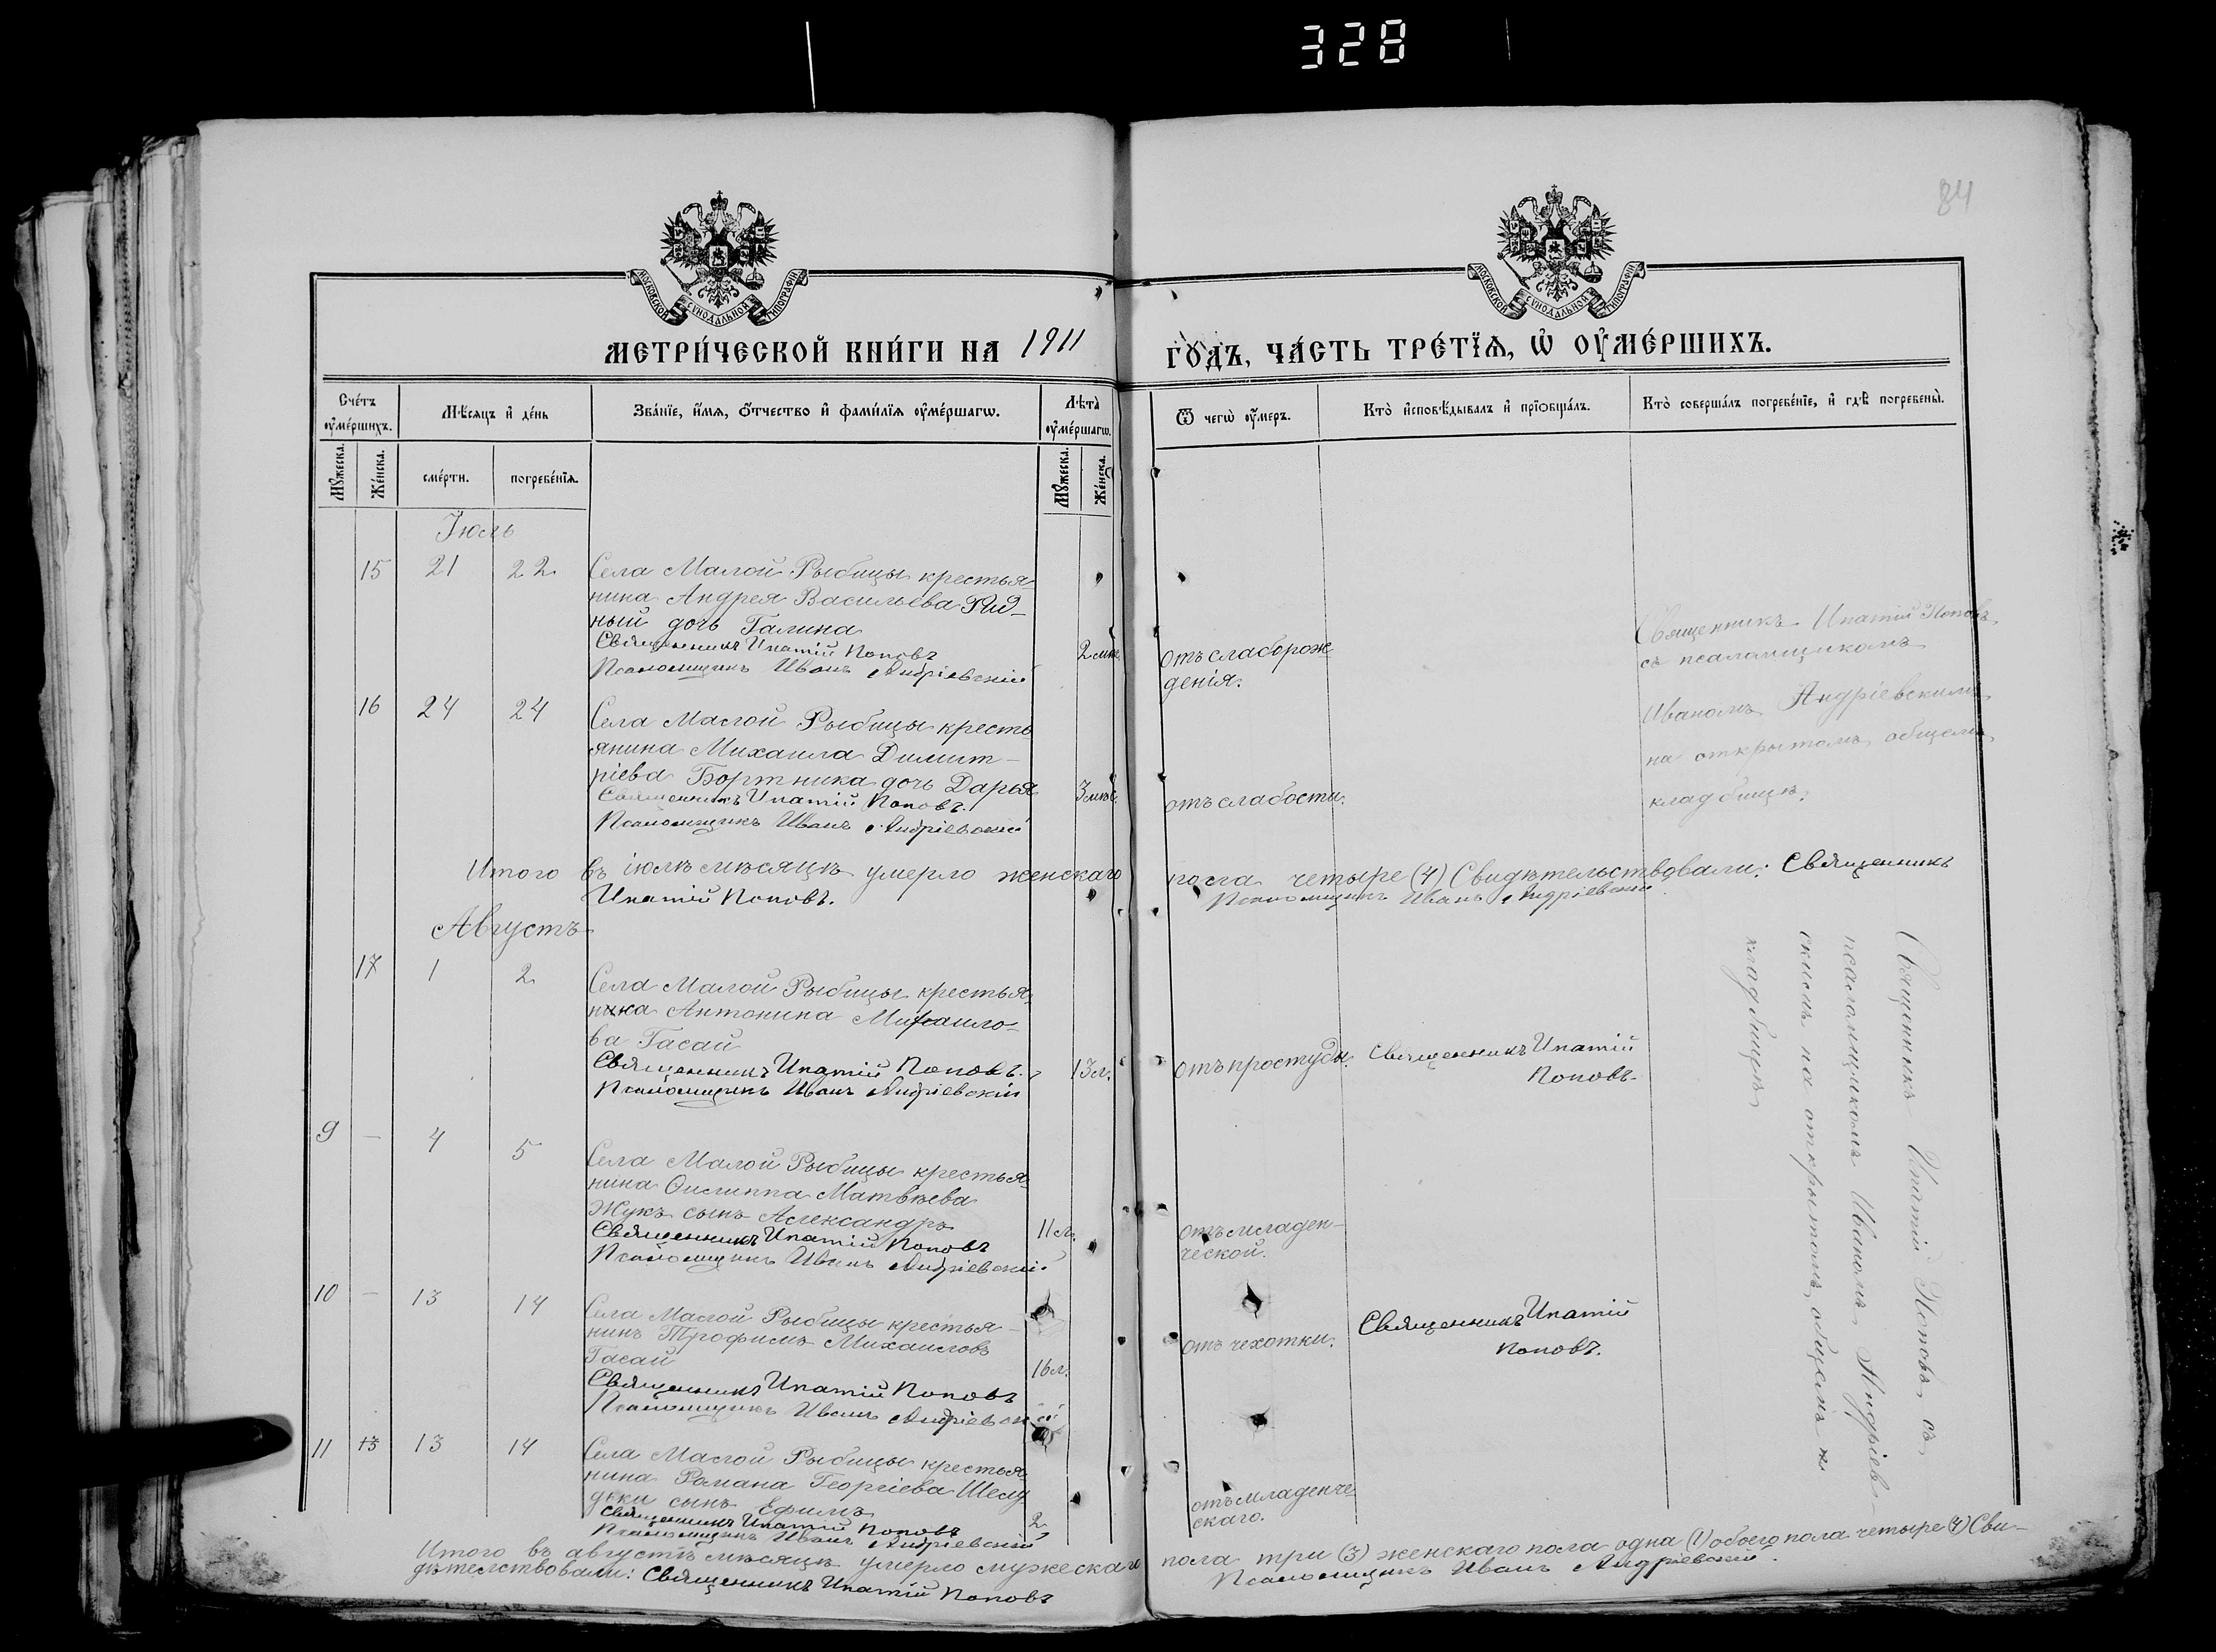 328
84
МОСКОВСКОЙ СѴНОДАЛЬНОЙ ТИПОГРАФІИ
МОСКОВСКОЙ СѴНОДАЛЬНОЙ ТИПОГРАФІИ
МЕТРИ́ЧЕСКОЙ КНИ́ГИ НА 1911 ГО́ДЪ, ЧА́СТЬ ТРЕ́ТЇѦ, Ѡ ОУМЕ́РШИХЪ.
Сче́тъ оуме́ршихъ.
Мѣ́сяцъ и де́нь
Зва́нїе, и́мѧ, о́тчество и фами́лїѧ оуме́ршагѡ.
Лѣта̀ оуме́ршагѡ.
Ѿ чегѡ̀ оу́меръ.
Кто̀ исповѣ́дывалъ и прїобща́лъ.
Кто̀ соверша́лъ погребе́нїе, и гдѣ̀ погребены̀.
Мꙋ́жеска.
Же́нска.
сме́рти.
погребе́нїѧ.
Мꙋ́жеска.
Же́нска.
Іюль
15 21 22 Села Малой Рыбицы крестья-
нина Андрея Васильева
ный дочь Галина
Священникъ Ипатій Поповъ
Псаломщикъ Иванъ Андріевскій
2 мѣс.
отъ слаборож-
денія.
Священникъ Ипатій Поповъ
съ псаломщикомъ
Иваномъ Андріевскимъ
на открытомъ общемъ
кладбищѣ.
16 24 24 Села Малой Рыбицы кресть
янина Михаила Димит-
ріева Бортника дочь Дарья
Священникъ Ипатій Поповъ.
Псаломщикъ Иванъ Андріевскій
3 мѣс.
отъ слабости.
Итого въ іюлѣ мѣсяцѣ умерло женскаго пола четыре (4) Свидѣтельствовали: Священникъ
Ипатій Поповъ. Псаломщикъ Иванъ Андріевскій.
Августъ
17 1 2 Села Малой Рыбицы крестья-
нина Антонина Михаило-
ва Гасай
Священникъ Ипатій Поповъ.
Псаломщикъ Иванъ Андріевскій
13 л.
отъ простуды.
Священникъ Ипатій
Поповъ.
Священникъ Ипатій Поповъ, съ
псаломщикомъ Иваномъ Андріев-
скимъ на открытомъ общемъ
кладбищѣ
9 – 4 5 Села Малой Рыбицы крестья-
нина Филиппа Матвѣева
Жукъ сынъ Александръ
Священникъ Ипатій Поповъ
Псаломщикъ Иванъ Андріевскій
11 м.
отъ младен-
ческой.
10 – 13 14 Села Малой Рыбицы крестья-
нинъ Трофимъ Михаиловъ
Гасай
Священникъ Ипатій Поповъ
Псаломщикъ Иванъ Андріевскій
16 л.
отъ чехотки.
Священникъ Ипатій
Поповъ.
11 13 13 14 Села Малой Рыбицы крестья-
нина Романа Георгіева
сынъ Ефимъ
Священникъ Ипатій Поповъ
Псаломщикъ Иванъ Андріевскій
2
отъ младенче
скаго.
Итого въ августѣ мѣсяцѣ умерло мужескаго пола три (3) женскаго пола одна (1) обоего пола четыре (4) Сви-
дѣтелствовали: Священникъ Ипатій Поповъ Псаломщикъ Иванъ Андріевскій.